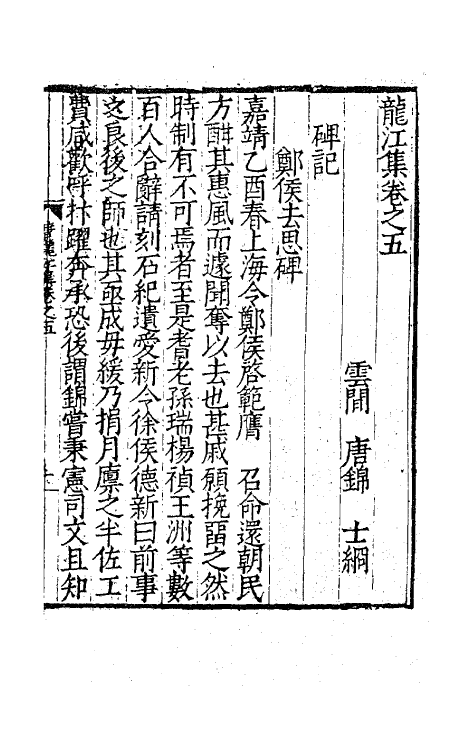 龍江集卷之五
雲間　唐錦　士綱
碑記
鄭侯去思碑
嘉靖乙酉春上海令鄭侯啓範膺　召命還朝民
方酣其惠風而遽聞奪以去也甚戚願挽畱之然
時制有不可焉者至是耆老孫瑞楊禎王洲等數
百人合辭請刻石紀遺愛新令徐侯德新曰前事
之良後之師也其亟成毋緩乃捐月廪之半佐工
費咸歡呼抃躍奔承恐後謂錦嘗秉憲司文且知
龍江集卷之五